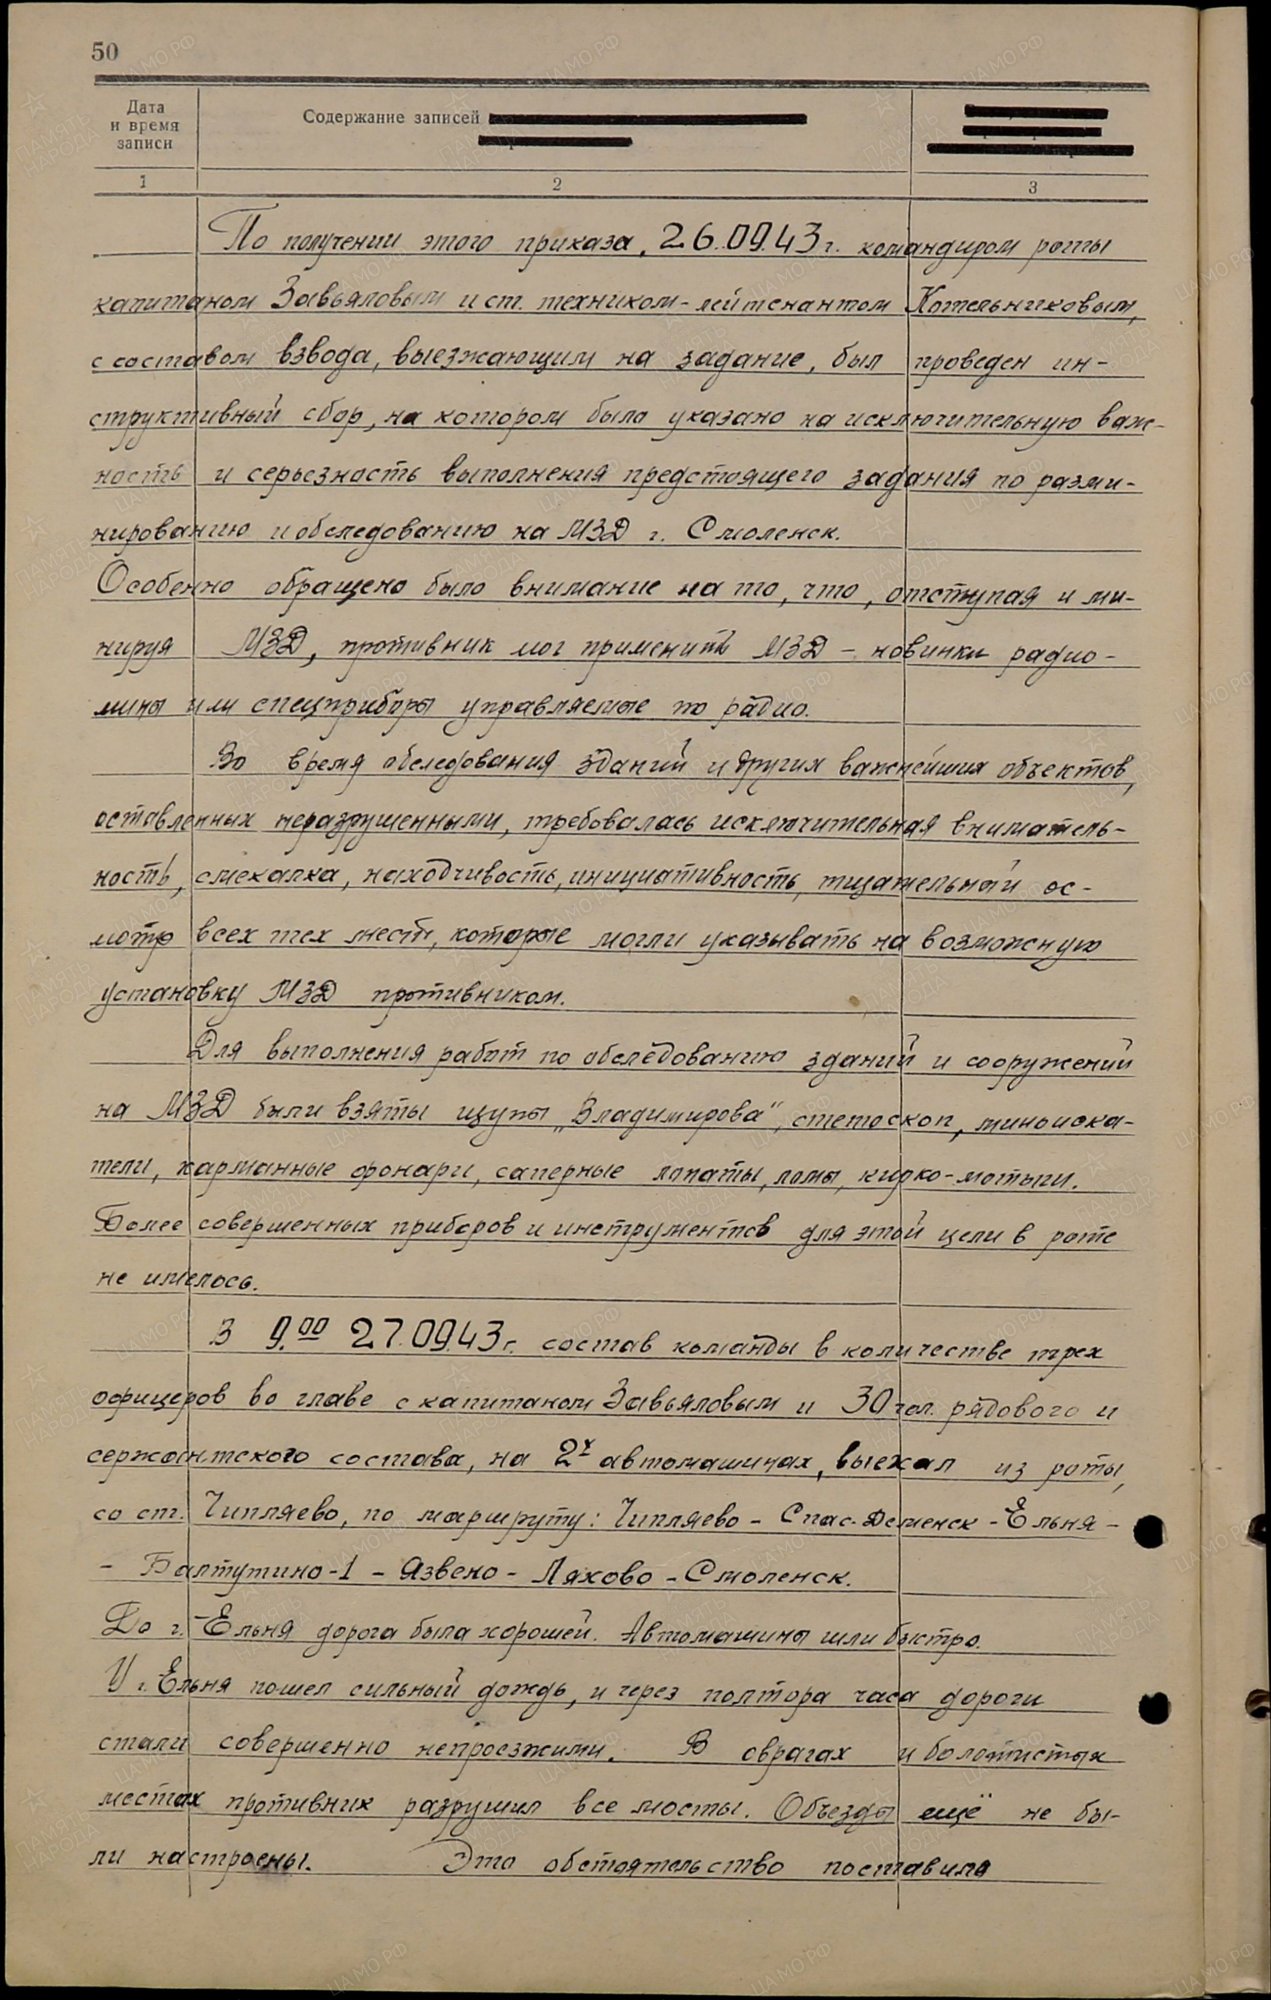 50
Дата
и время
записи
Содержание записей
1
2
3
По получении этого приказа, 26.09.43 г. командиром роты
капитаном Завьяловым и ст. техником-лейтенантом Котельниковым,
с составом взвода, выезжающим на задание, был проведен ин-
структивный сбор, на котором было указано на исключительную важ-
ность и серьезность выполнения предстоящего задания по разми-
нированию и обследованию на МЗД г. Смоленск.
Особенно обращено было внимание на то, что, отступая и ми-
нируя МЗД, противник мог применить МЗД - новинки радио-
мины или спецприборы управляемые по радио.
Во время обследования зданий и других важнейших объектов,
оставленных неразрушенными, требовалась исключительная вниматель-
ность, смекалка, находчивость, инициативность, тщательный ос-
мотр всех тех мест, которые могли указывать на возможную
установку МЗД противником.
Для выполнения работ по обследованию зданий и сооружений
на МЗД были взяты щупы „Владимирова", стетоскоп, миноиска-
тели, карманные фонари, саперные лопаты, ломы, кирко-мотыги.
Более совершенных приборов и инструментов для этой цели в роте
не имелось.
В 9.00 27.09.43 г. состав команды в количестве трех
офицеров во главе с капитаном Завьяловым и 30 чел. рядового и
сержантского состава, на 2х автомашинах, выехал из роты,
со ст. Чипляево, по маршруту: Чипляево - Спас-Деменск - Ельня -
- Балтутино-1 - Язвено - Ляхово - Смоленск.
До г. Ельня дорога была хорошей. Автомашины шли быстро.
У г. Ельня пошел сильный дождь, и через полтора часа дороги
стали совершенно непроезжими. В оврагах и болотистых
местах противник разрушил все мосты. Объезды ещё не бы-
ли настроены. Это обстоятельство поставило